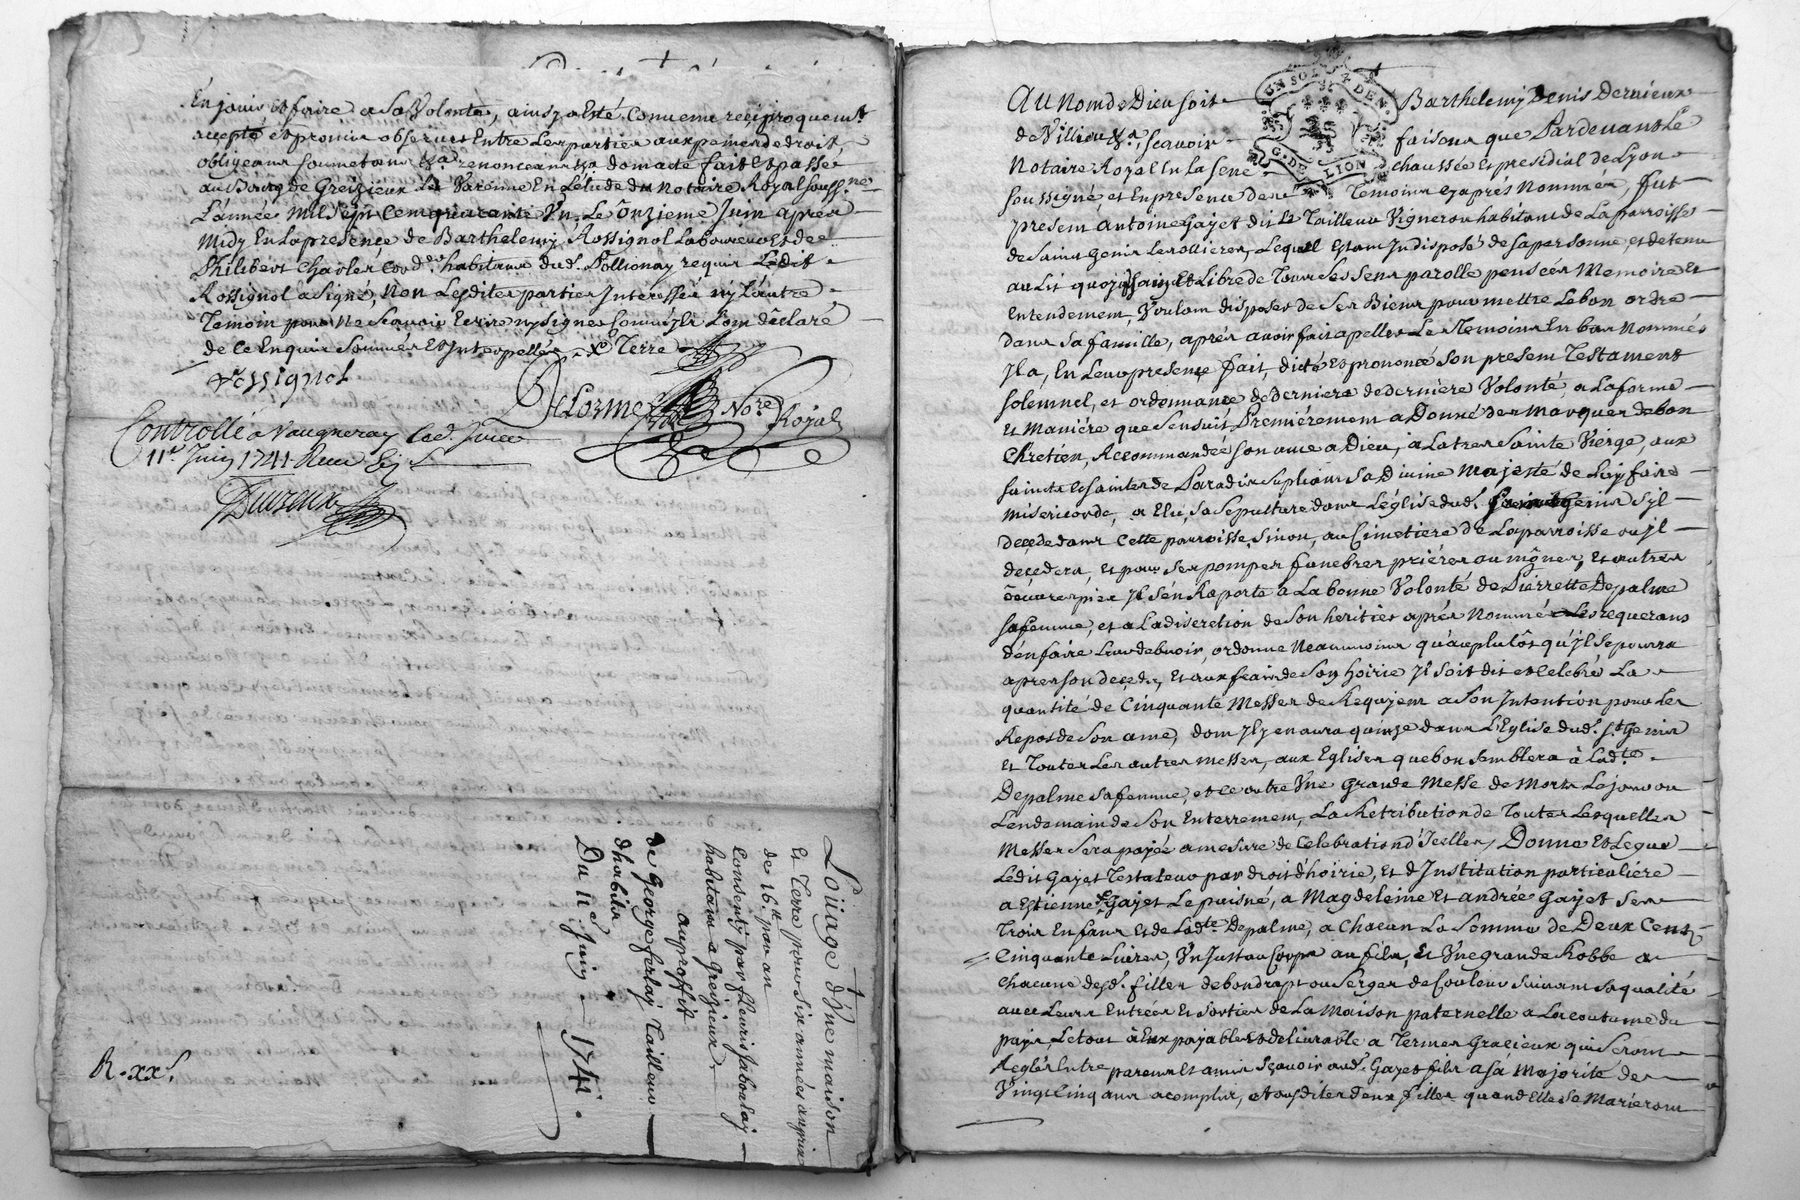 En jouir et faire a sa Volonté, ainsy a esté Convenu reciproquem.t
accepté et promis observer Entre les parties aux peines de droit,
obligeans soumetans &.a renonceans &.a dont acte fait et passé
au Bourg de Greizieux La Varenne En L'etude du Notaire Royal souss.né
L'année mil sept Cent quarante Un Le Onzieme Juin aprés
Midy En La presence de Barthelemy Rossignol Laboureur et de
Philibert Charles habitans dud. Pollionay requis Ledit
Rossignol a signé, Non Lesdites parties Interessées ny L'autre
Temoin pour Ne Scavoir Ecrire ny signer Comme ils L'ont déclaré
de Ce Enquis Sommés et Interpellés Terre
Rossignol
Delorme No.re Royal
Controllé a Vaugneray Led. Jour
11.e Juin 1741 Receu
R. xx s.
Loüage d'Une maison
et Terre pour six années au prix
de 16.lt par an
Consenty par fleuris
habitans a Greizieux
au proffit
de George ferlay Tailleur
d'habits
Du 11.e Juin 1741.
UN SOL DEN.
G. DE LION
Au Nom de Dieu soit Barthelemy Denis Dervieux
de Villieu &.a, Scavoir faisons que Pardevant Le
Notaire Royal En La Sene chaussée et presidial de Lyon
soussigné et En presence de Temoins cy aprés Nommés, fut
present Antoine Gayet dit Le Tailleur Vigneron habitant de La parroisse
de Saint Genis Les ollieres, Lequel Etant Indisposé de sa personne et detenu
au Lit quoy Sain et Libre de Tous Ses Sens parolle pensées Memoire et
Entendement, Voulant disposer de Ses Biens pour mettre Le bon ordre
dans sa famille, aprés avoir fait apeller Les Temoins En bas Nommés
Il a, En Leur presence fait, dicté et prononcé Son present Testament
solemnel, et ordonnance de derniere de derniére Volonté, a La forme
et Maniére que Sensuit Premiérement a Donné Des Marques de bon
Chrétien, Recommandée Son ame a Dieu, a La tres Sainte Vierge, aux
saints et saintes de Paradis Supliant Sa Divine Majesté de Luy faire
misericorde, a Elu Sa Sepulture dans L'église dud. Saint Genis Syl
deçede dans Cette parroisse, Sinon, au Cimetiere de La parroisse ou jl
deçedera, et pour Ses pompes funebres priéres aumônes, et autres
oeuvres pies Il S'en Raporte a La bonne Volonté de Pierrette Depalme
sa femme, et a La discretion de Son heritier aprés Nommé Les requerans
d'en faire Leur debvoir, ordonne Neanmoins qu'au plutôt qu'Il Se pourra
apres son deçeds, et aux frais de Son hoirie Il Soit dit et Celebré La
quantité de Cinquante Messes de Requiem a Son Intention pour Le
Repos de Son ame, dont Il y en aura quinze dans L'Eglise dud. S.t Genis
et Toutes Les autres messes, aux Eglises que bon Semblera à Lad.te
Depalme sa femme, et ce outre Une Grande Messe de Morts Le jour ou
Lendemain de Son Enterrement, La Retribution de Toutes Lesquelles
Messes Sera payée a mesure de Celebration d'Icelles, Donne et Legue
Ledit Gayet Testateur par droit d'hoirie, et d'Institution particuliére
a Estienne Gayet Le puisné, a Magdeleine et andrée Gayet Ses
Trois Enfans et de Lad.te Depalme, a Chacun La Somme de Deux Cens
Cinquante Livres, Un Justaucorps au fils, et Une grande Robbe a
chacune desd. filles de bon drapt ou Serges de Couleur Suivant Sa qualité
avec Leurs Entrées et Sorties de La Maison paternelle a La coutume du
païs, Le tout à Eux payable et delivrable a Termes Gracieux qui Seront
Reglés Entre parens et amis Sçavoir aud. Gayet fils a Sa Majorité de
Vingt Cinq ans acomplis, et ausdites Deux filles quand Elle Se Marieront